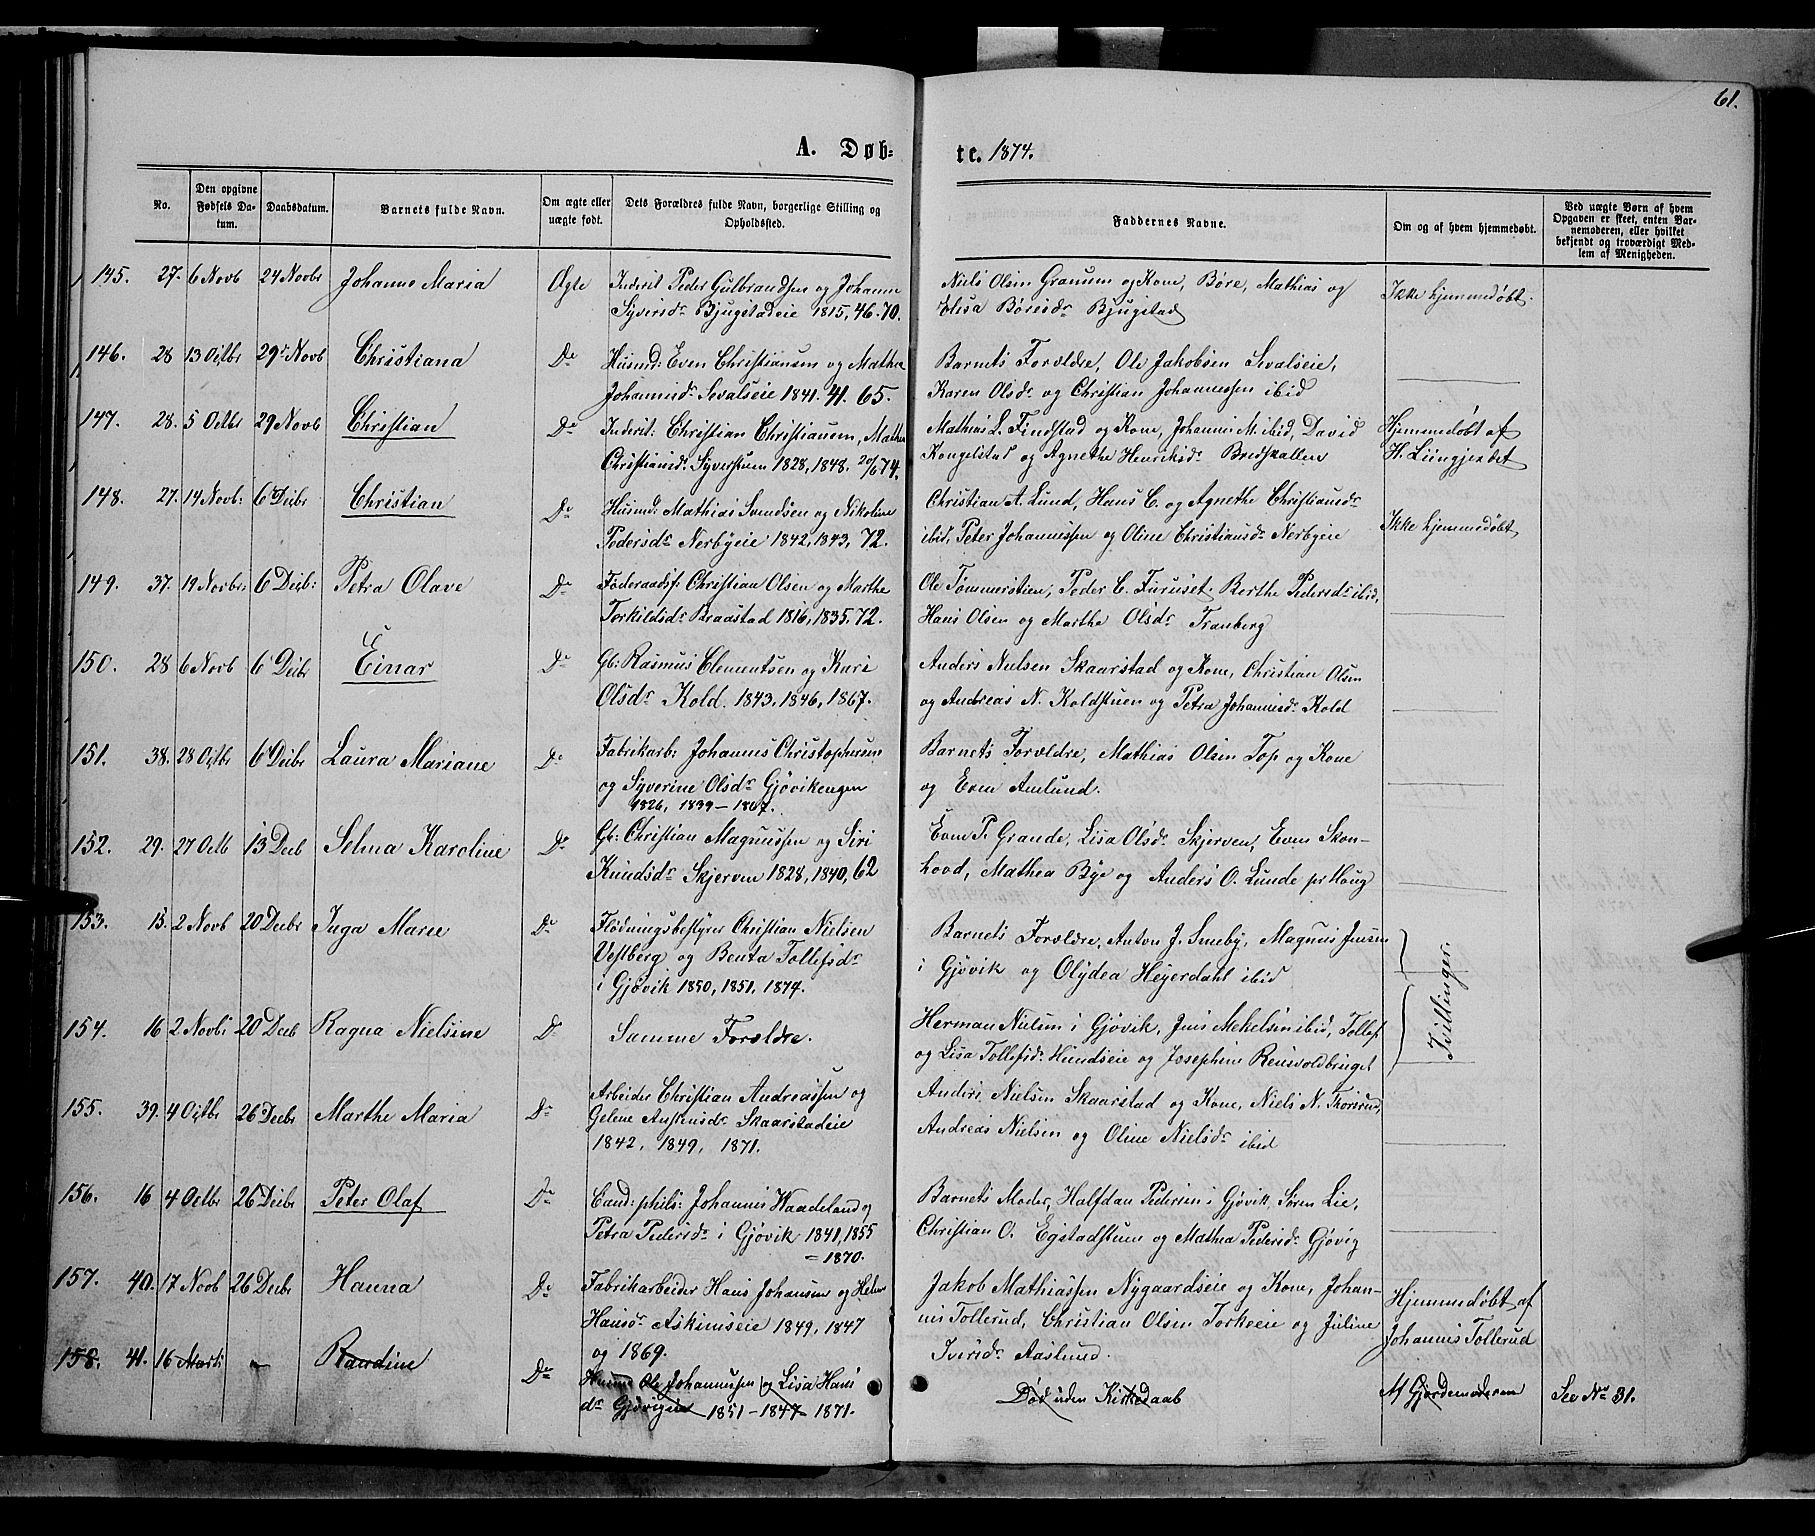 61.
A. Døb= te. 1874.
No.
Den opgivne Fødsels Da-tum.
Daabsdatum.
Barnets fulde Navn.
Om ægte eller uægte født.
Dets Forældres fulde Navn, borgerlige Stilling og Opholdssted.
Faddernes Navne.
Om og af hvem hjemmedøbt.
Ved uægte Børn af hvem Opgaven er skeet, enten Bar-nemoderen, eller hvilket bekjendt og troværdigt Med-lem af Menigheden.
145. 27. 6 Novb 24 Novbr Johanne Maria Ægte Inderst Peder Gulbrandsen og Johanne
Syversdr Bjugstadeie 1815, 46-70.
Niels Olsen Granum og Kone, Børe, Mathias og
Elisa Børesdr Bjugstad
Ikke hjemmedøbt.
146. 28 13 Octbr 29 Novb Christiana Do Husmd: Even Christiansen og Mathea
Johannisdr Sevalseie 1841. 41. 65.
Barnets Forældre, Ole Jakobsen Sevalseie,
Karen Olsdr og Christian Johannessen ibid
147. 28. 5 Octbr 29 Novb Christian Do Inderst: Christian Christiansen, Mathea
Christiansdr Syverstuen 1828, 1848. 20/6 74.
Mathias L. Findstad og Kone, Johannes M. ibid, David
Kongelstad og Agnethe Henriksdr Bredskallen
Hjemmedøbt af
H. Liingjerdet
148. 27. 14 Novb: 6 Decbr Christian Do Husmd: Mathias Svendsen og Nikoline
Pedersdr Nerbyeie 1842, 1843, 72.
Christian A. Lund, Hans C. og Agnethe Christiansdr
ibid, Peter Johannessen og Oline Christiansdr Nerbyeie
Ikke hjemmedøbt
149. 37. 19 Novbr: 6 Decbr: Petra Olave Do Føderaadsf: Christian Olsen og Marthe
Torkildsdr Braastad 1816, 1835, 72.
Ole Tømmerstien, Peder C. Furuset. Berthe Pedersdr ibid,
Hans Olsen og Marthe Olsdr Tranberg
150. 28 6 Novb 6 Decbr Einar Do Gb: Rasmus Clementsen og Kari
Olsdr Kold. 1843, 1846, 1867.
Anders Nielsen Skaarstad og Kone, Christian Olsen
og Andreas N. Koldstuen og Petra Johannesdr Kold
151. 38. 28 Octbr 6 Decbr Laura Mariane Do Fabrikarb: Johannes Christophersen
og Syverine Olsdr Gjøvikengen
1826, 1839 - 1867.
Barnets Forældre, Mathias Olsen Top og Kone
og Even Amlund.
152. 29. 27 Octb 13 Decb Selma Karoline Do Gb: Christian Magnussen og Siri
Knudsdr Skjerven 1828, 1840, 62
Even P. Grande, Lisa Olsdr Skjerven, Even Skon-
hovd, Mathea Bye og Anders O. Lunde pr Houg
153. 15. 2 Novb 20 Decbr Inga Marie Do Flødningsbestyrer Christian Nielsen
Vestberg og Benta Tollefsdr
i Gjøvik 1850, 1851, 1874.
Barnets Forældre, Anton J. Smeby, Magnus Jensen
i Gjøvik og Olydea Heyerdahl ibid
Tvillinger.
154. 16 2 Novb: 20 Decb Ragna Nielsine Do Samme Forældre.
Herman Nielsen i Gjøvik, Jens Mikelsen ibid, Tollef
og Lisa Tollefsdr Hundseie og Josephine Reinsvoldbruget
155. 39. 4 Octbr 26 Decbr Marthe Maria Do Arbeider Christian Andreassen og
Gelene Asknudsdr Skaarstadeie
1842, 1849, 1871.
Anders Nielsen Skaarstad og Kone, Niels N. Thorsrud,
Andreas Nielsen og Oline Nielsdr ibid
156. 16 4 Octbr 26 Decbr Peter Olaf Do Cand: phils: Johannes Haadeland og
Petra Pedersdr i Gjøvik 1841, 1855
= 1870.
Barnets Moder, Halfdan Pedersen i Gjøvik, Søren Lie,
Christian O. Egstadstuen og Mathea Pedersdr Gjøvig
157. 40. 17 Novb 26 Decbr Hanna Do Fabrikarbeider Hans Johansen og Helene
Hansdr Askimseie 1849, 1847
og 1869.
Jakob Mathiassen Nygaardseie og Kone, Johan-
nes Tollerud, Christian Olsen Torkeeie og Juline
Iversdr Aaslund.
Hjemmedøbt af
Johannes Tollerud
158. 41. 16 Marts Randine Do Husmd Ole Johannessen og Lisa Hans
dr Gjøvigeie 1851 - 1847 - 1871.
Død uden Kirkedaab
Af Gjordemoderen
See No 31.